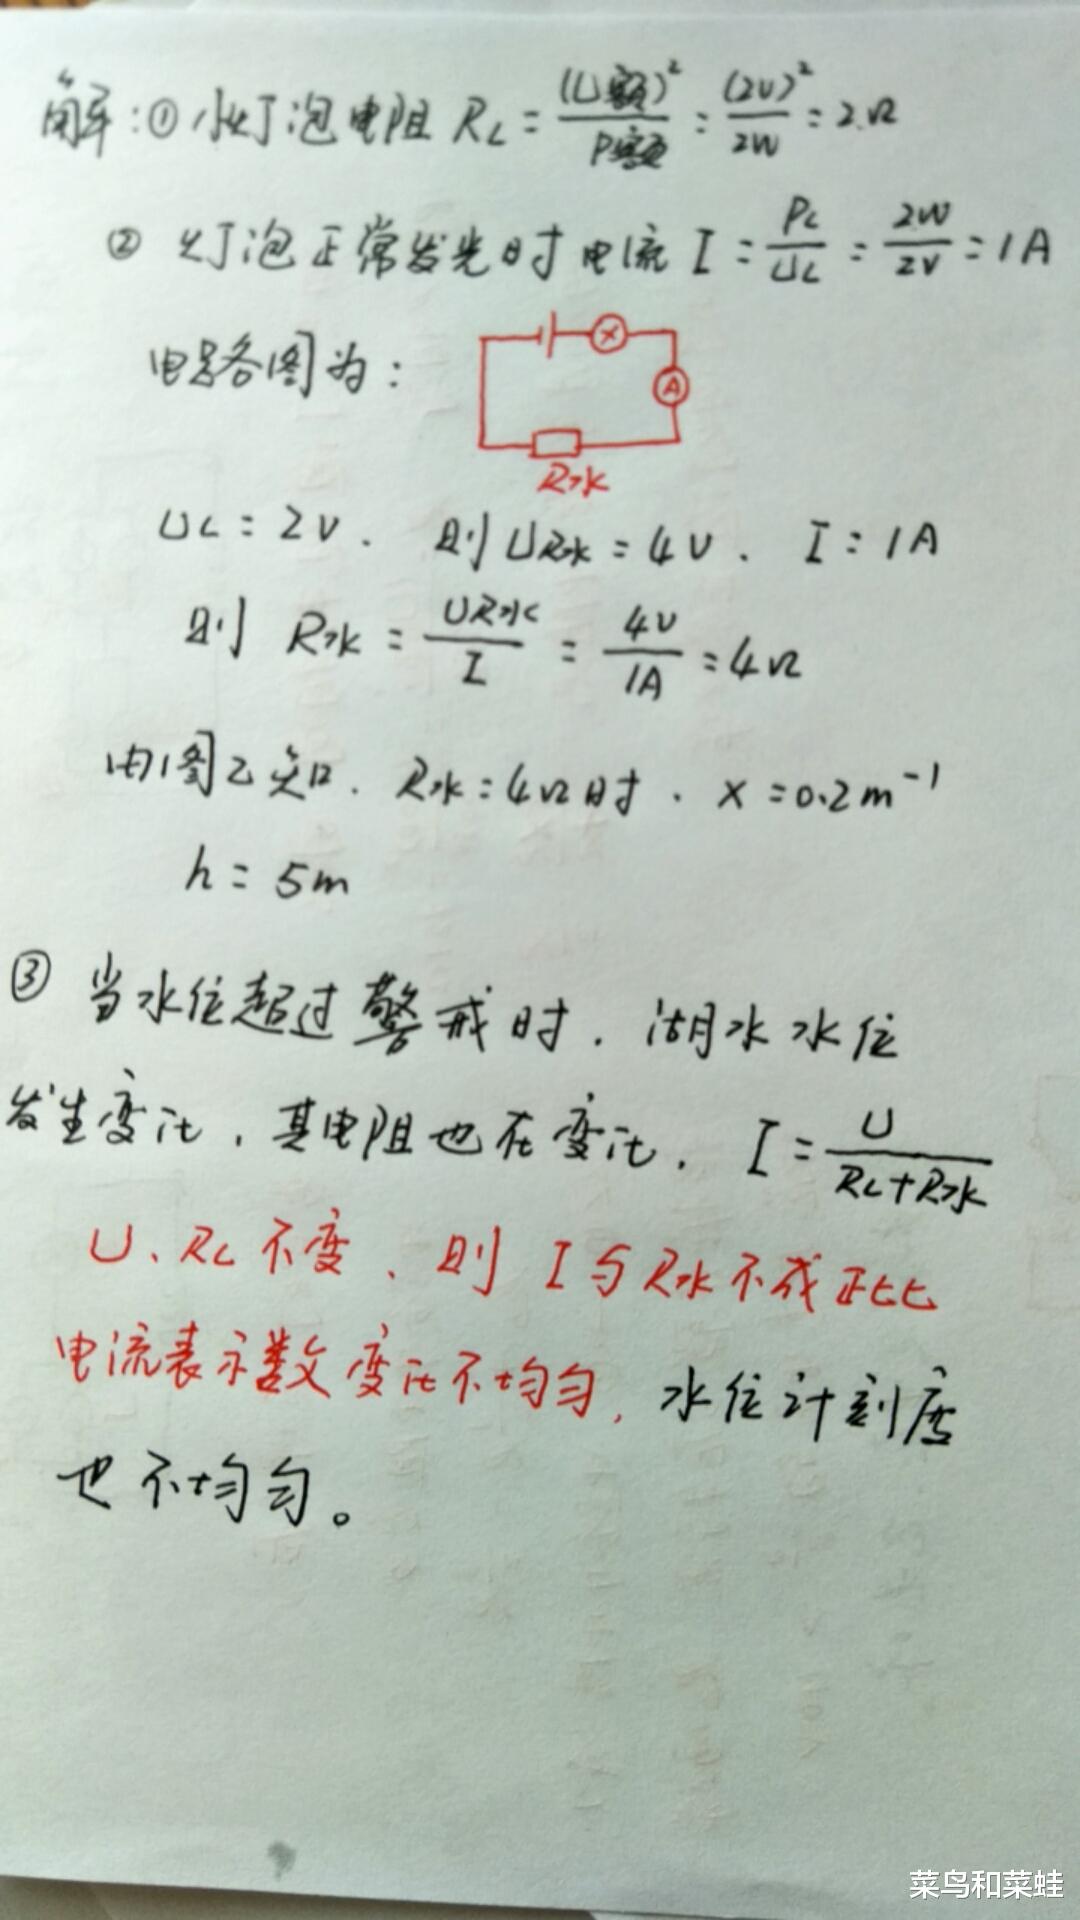 解:① 小灯泡电阻 RL = (U额)² / P额 = (2V)² / 2W = 2Ω
② 灯泡正常发光时电流 I = PL / UL = 2W / 2V = 1A
电路图为:
A
R水
UL = 2V. 则 UR水 = 4V. I = 1A
则 R水 = UR水 / I = 4V / 1A = 4Ω
由图乙知. R水 = 4Ω时. x = 0.2m⁻¹
h = 5m
③ 当水位超过警戒时. 湖水水位
发生变化, 其电阻也在变化. I = U / RL+R水
U、RL不变、则 I与R水不成正比
电流表示数变化不均匀, 水位计刻度
也不均匀。
菜鸟和菜蛙